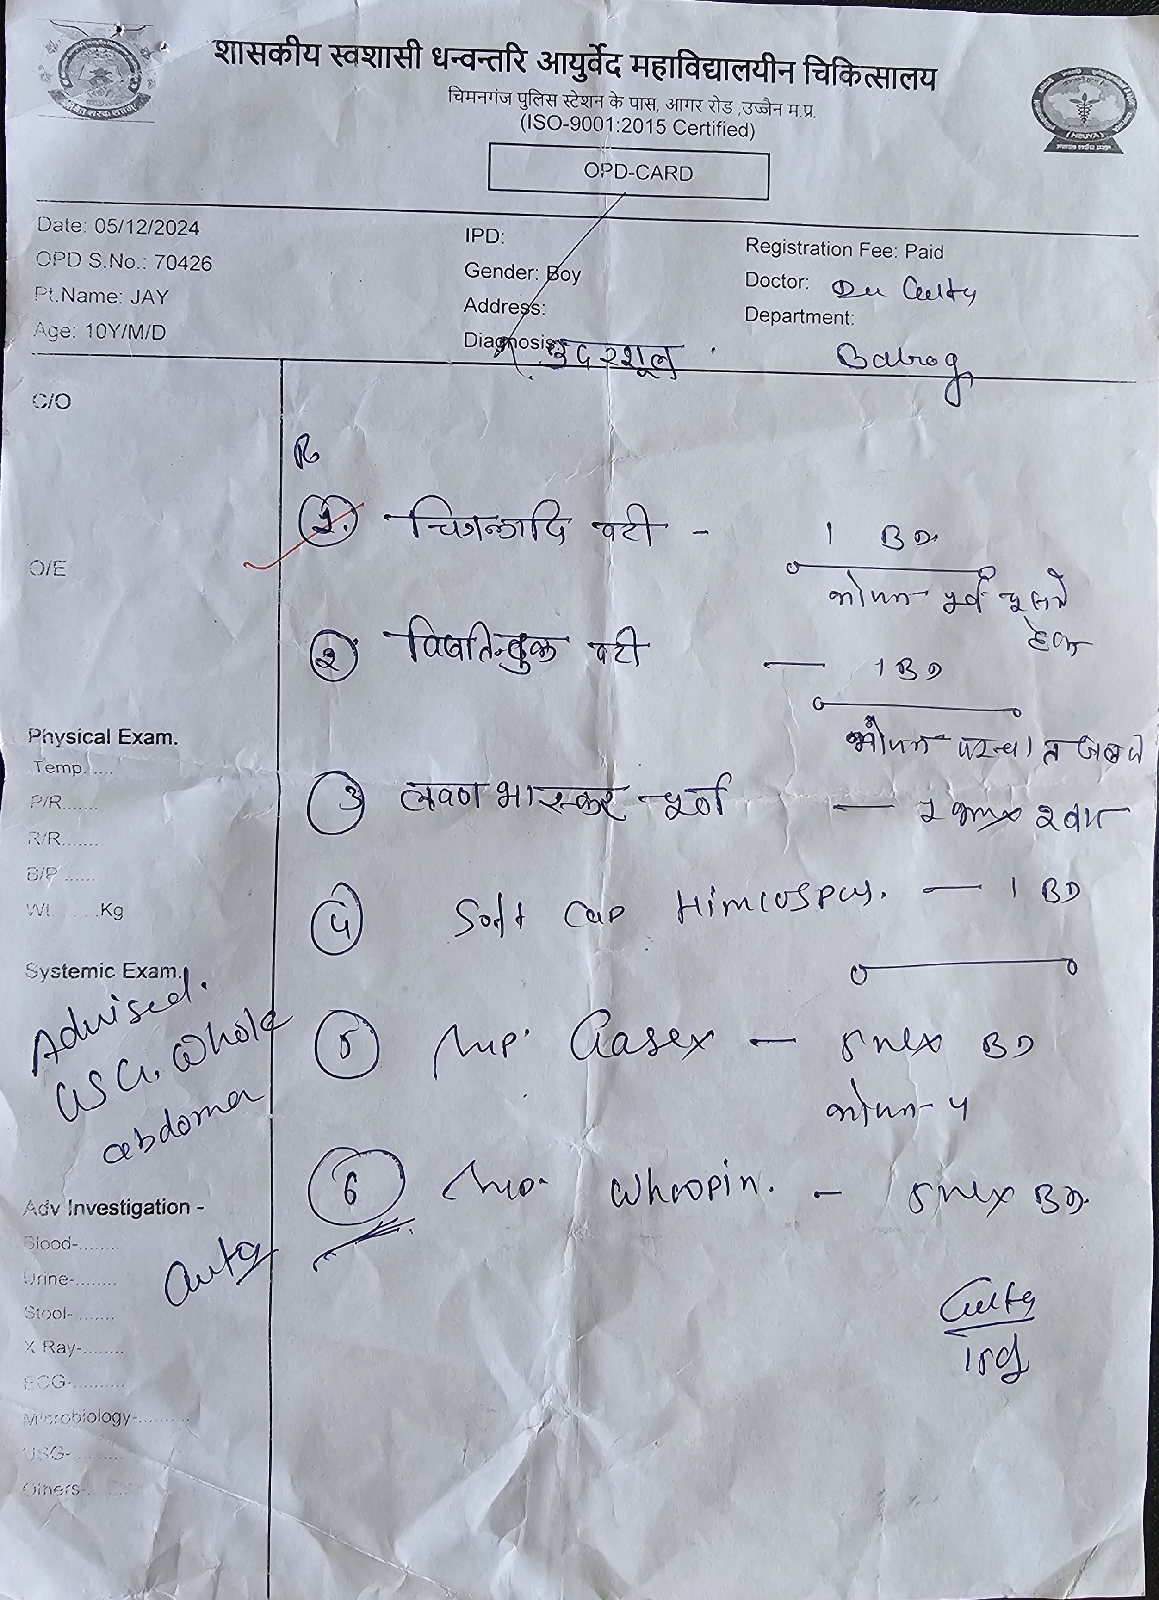 शासकीय स्वशासी धन्वन्तरि आयुर्वेद महाविद्यालयीन चिकित्सालय
चिमनगंज पुलिस स्टेशन के पास, आगर रोड ,उज्जैन म.प्र.
(ISO-9001:2015 Certified)
OPD-CARD
Date: 05/12/2024
OPD S.No.: 70426
Pt.Name: JAY
Age: 10Y/M/D
IPD:
Gender: Boy
Address:
Diagnosis: उदरशूल
Registration Fee: Paid
Doctor:
Department:
Balrog
C/O
O/E
Physical Exam.
Temp.....
P/R.......
R/R.......
B/P ......
Wt. .....Kg
Systemic Exam.
Advised.
USG. Whole
abdomen
Adv Investigation -
Blood-........
Urine-........
Stool- .......
X Ray-........
ECG-..........
Microbiology-..........
USG-..........
Others-
Rx
1. चित्रकादि वटी - 1 BD.
भोजन पूर्व चूसने
हेतु
2 विषतिन्दुक वटी — 1 BD
भोजन पश्चात
3 लवण भास्कर चूर्ण — 2 बार
4 Soft Cap Himcospas. — 1 BD
5 Syp. Gasex — 5ml x BD
6 Syp. Whoopin. — 5ml x BD.